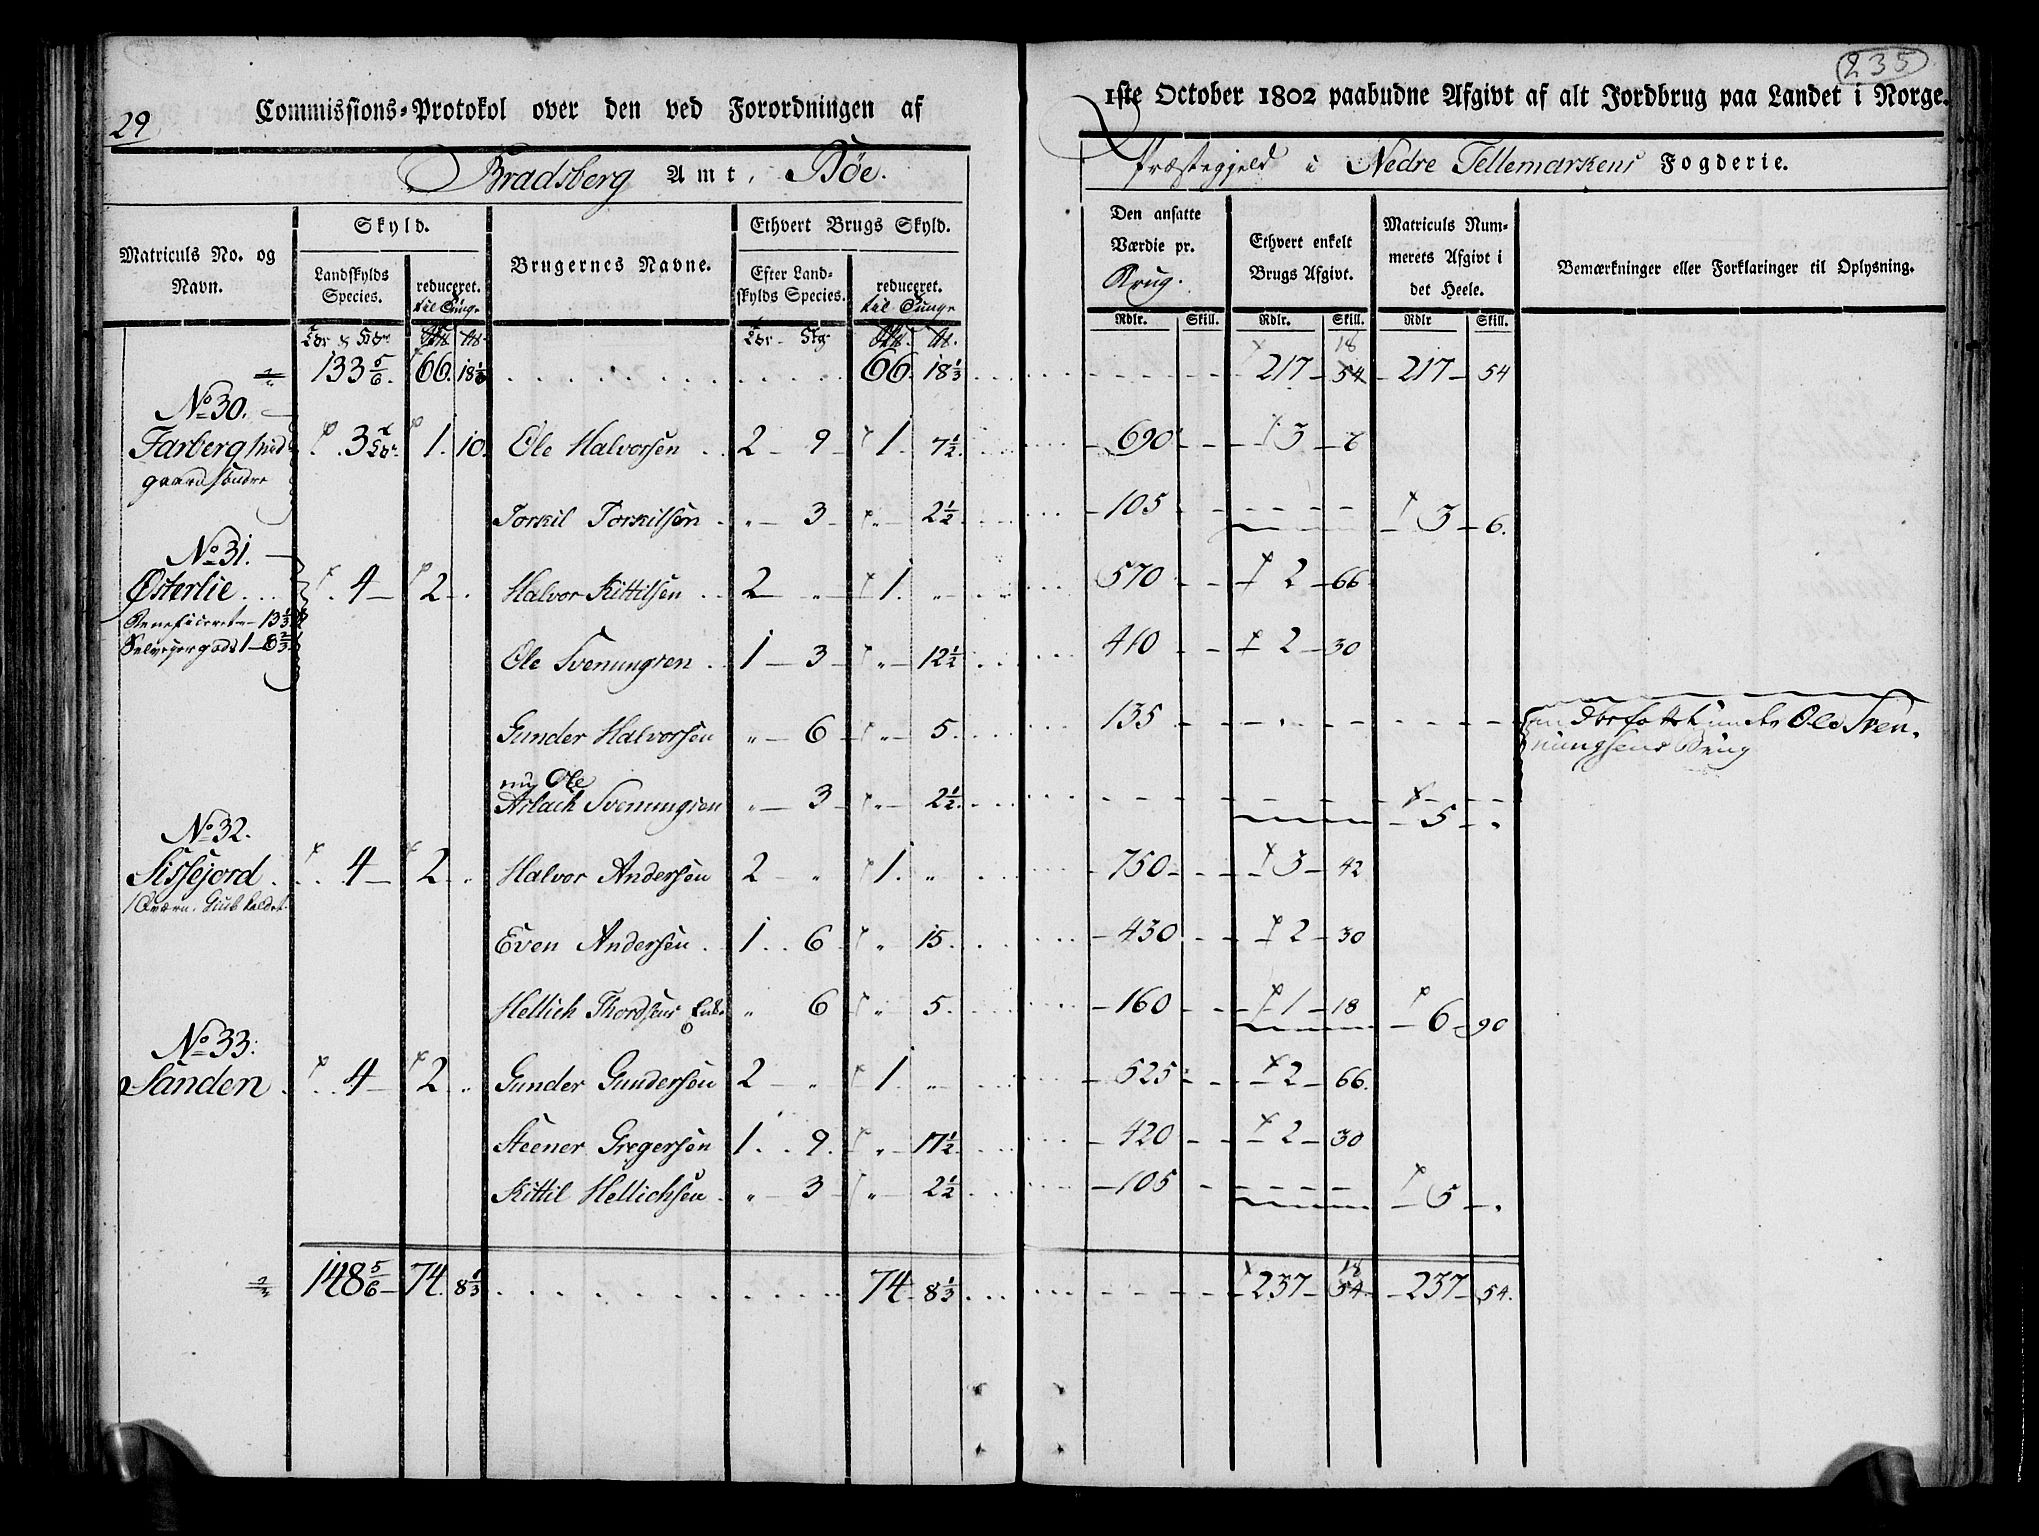 235
29
Commissions=Protokol over den ved Forordningen af
1ste October 1802 paabudne Afgivt af alt Jordbrug paa Landet i Norge.
Bradsberg Amt, Bøe.
Præstegjeld i Nedre Tellemarkens Fogderie.
Matriculs No. og Navn.
Skyld.
Landskylds Species.
reduceret. til Tunge
Brugernes Navne.
Ethvert Brugs Skyld.
Efter Landskylds Species.
reduceret. til Tunge
Den ansatte Værdie pr. Brug.
Ethvert enkelt Brugs Afgivt.
Matriculs Nummerets Afgivt i det Heele.
Bemærkninger eller Forklaringer til Oplysning.
Rdlr. Skill. Rdlr. Skill. Rdlr Skill.
133 5/6. 66. 18 1/3 66. 18 1/3 217 - 54 18 - 217 - 54
No 30.
Farberg Mid 3 1. 10. Ole Halvorsen 2 - 9 1. 7 1/2 690 3 - 6
gaard søndre
Torkil Torkilsen " - 3 " 2 1/2 105 3 - 6.
No 31.
Østerlie 4 2 Halvor Kittilsen 2 " 1. " 570 2 - 66
Beneficeret - 13 1/3
Selveyergods 1 - 6 2/3
Ole Svenungsen 1 - 3 " 12 1/2 410 2 - 30
Gunder Halvorsen " - 6 " 5. 135 under Ole Sven-
nungsens Brug
nu Ole
Aslach Svenungsen " - 3 " 2 1/2 5 "
No 32.
Sissejord 4 2 " Halvor Andersen 2 " 1. " 750 3 - 42
1 Qværn
Even Andersen 1 6 " 15. 430 2 - 30
Hellich Thordsens Enke " 6 " 5. 160 1 - 18 6 - 90
No 33.
Sanden 4 2 " Gunder Gundersen 2 " 1. " 525 2 - 66.
Steener Gregersen 1 9. " 17 1/2 420 2 - 30
Kittil Hellichsen " - 3 " 2 1/2 105 5 "
148 5/6 74. 8 1/3 74 8 1/3 237 - 54 18 - 237 - 54.